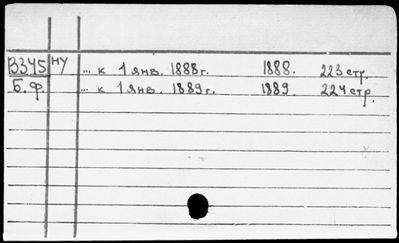 В345 НУ ... к 1 янв. 1888 г. 1888. 223 стр.
Б. ф. ... к 1 янв. 1889 г. 1889. 224 стр.